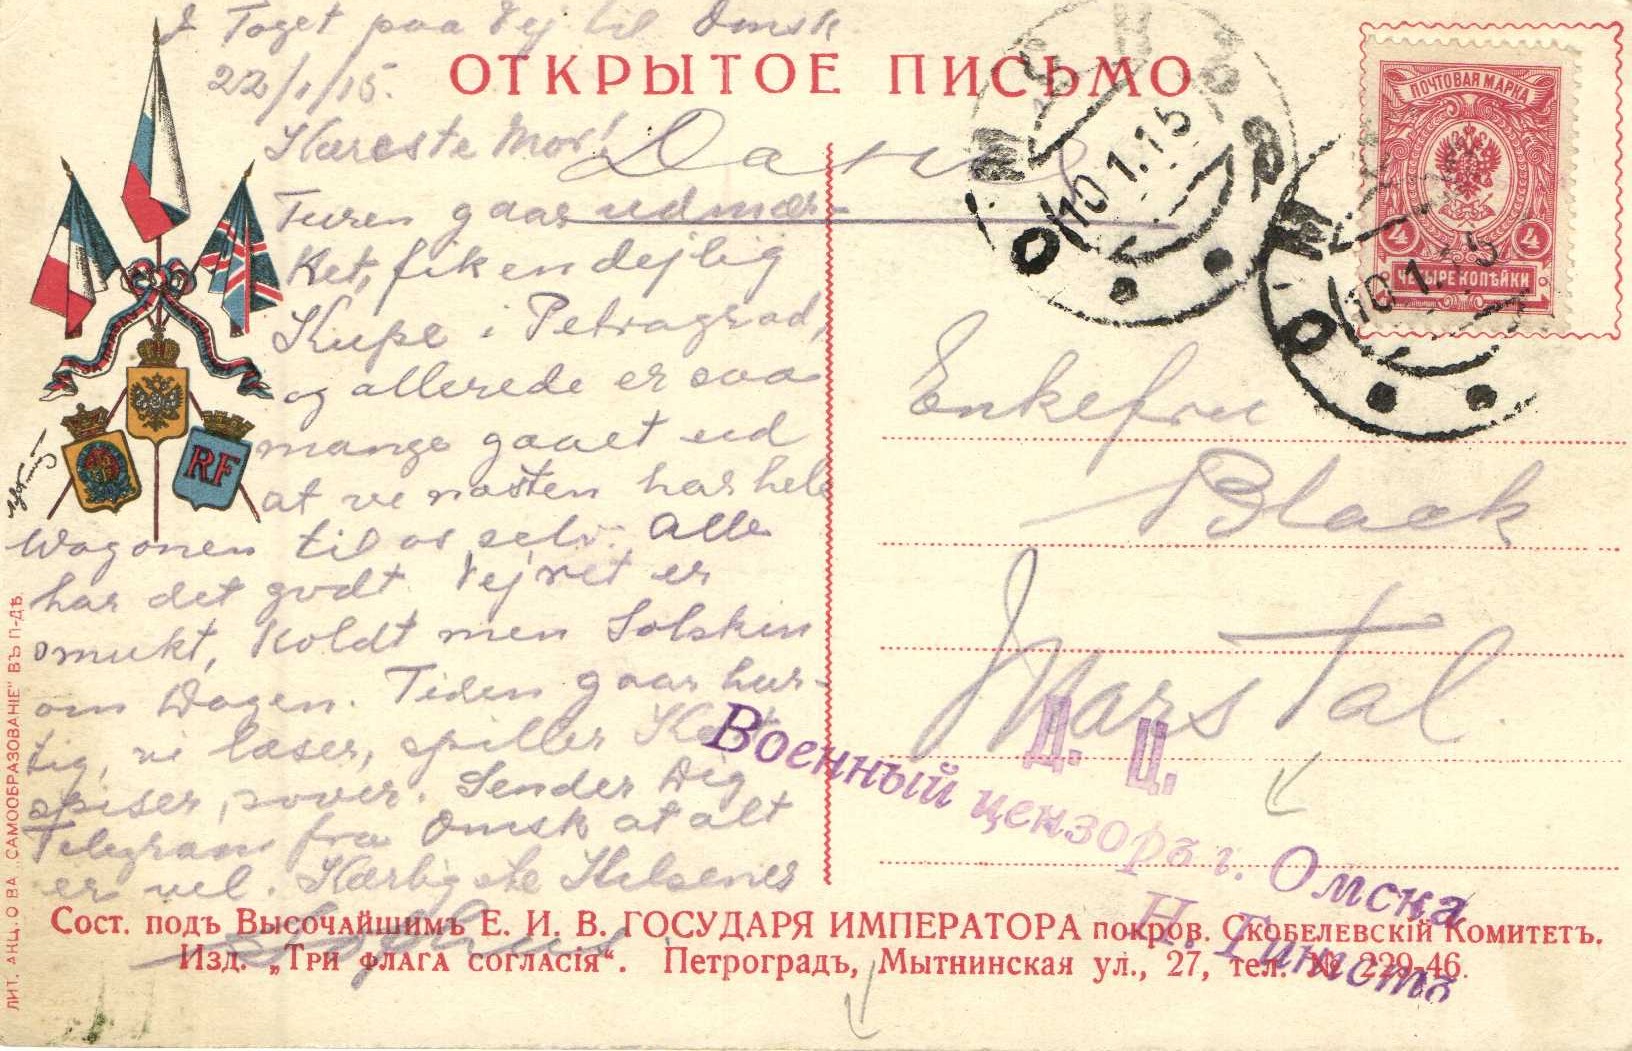 I Toget paa Vej til Omsk
22/1/15.
ОТКРЫТОЕ ПИСЬМО
Kæreste Mor!
Turen gaar udmær-
ket, fik en dejlig
Kupe i Petrograd,
og allerede er saa
mange gaaet ud
at vi næsten har hele
Wagonen til os selv. Alle
har det godt. Vejret er
smukt, Koldt men Solskin
om Dagen. Tiden gaar hur-
tig, vi læser, spiller Kort
spiser, sover. Sender Dig
Telegram fra Omsk at alt
er vel. Kærligste Hilsener
ПОЧТОВАЯ МАРКА
4 4
ЧЕТЫРЕ КОПѢЙКИ
ОМСКЪ
10.1.15
ОМСКЪ
10.1.15
Enkefru
Black
Marstal
Д. Ц.
Военный цензоръ г. Омска
RF
Сост. подъ Высочайшимъ Е. И. В. ГОСУДАРЯ ИМПЕРАТОРА покров. Скобелевскій Комитетъ.
Изд. „Три флага согласія“. Петроградъ, Мытнинская ул., 27, тел. № 229-46.
ЛИТ. АКЦ. О ВА „САМООБРАЗОВАНІЕ" ВЪ П-ДѢ.